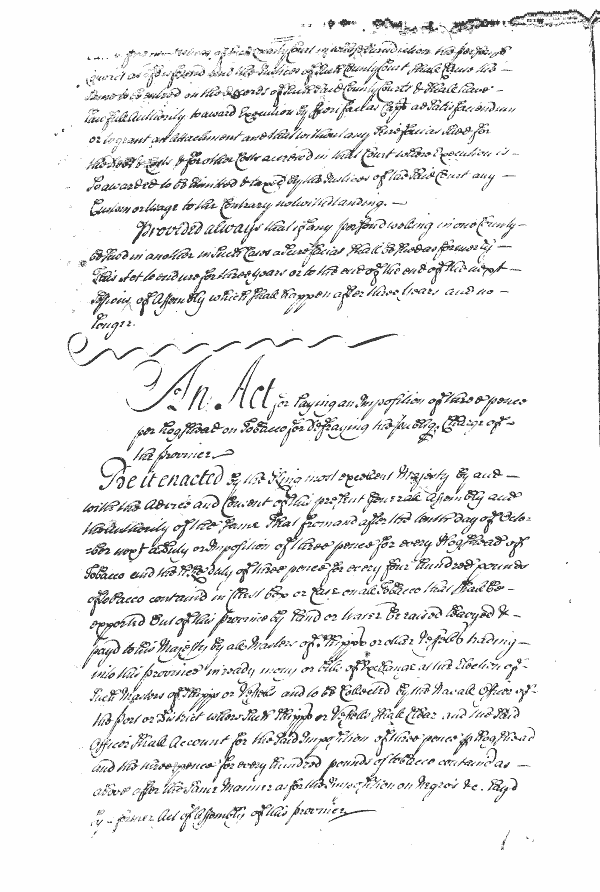 Justices of the County Court in whose Jurisdiction the person
and the Justices of such County Court shall cause the
same to be entred on the Records of such said County Courts & shall have
full Authority to award Execution by fieri facias Capt ad Satisfaciendum
or to grant an attachment and that without any Scire facias sued for
the Debt & Costs & for other Costs accrewed in that Court where Execution is
so awarded to be limited & taxed by the Justices of the said Court any
Custom or usage to the Contrary notwithstanding.
Provided always that if any person dweling in one County
be sued in another in such Cases a Scire facias shall be sued as formerly
This Act to endure for three years or to the end of the end of the next
Sessions of Assembly which shall happen after three years and no
longer.
An Act for Laying an Imposition of three pence
per hogshead on Tobacco for Defraying the publiq Charge of
the province
Be it enacted by the King most excellent Majesty by and
with the Advice and Consent of this present Generall Assembly and
the Authority of the same That from and after the tenth day of Octo-
ber next a Duty or Imposition of three pence for every Hogshead of
Tobacco and the like duty of three pence for every four hundred pounds
of tobacco contained in Chest box or Case on all Tobacco that shall be
exported out of this province by Land or water be raised leavyed &
payd to his Majesty by all Masters of Shipps or other Vessells trading
into this province in ready mony or bills of Exchange at the Election of
such Masters of Shipps or Vessels and to be Collected by the Navall Officer of
the port or District where such Shipps or Vessells shall Clear and the said
Officer shall Account for the said Imposition of three pence p hogshead
and the three pence for every hundred pounds of tobacco contained as
above after the same Manner as for the Imposition on Negros &c. lay'd
by former Act of Assembly of this province